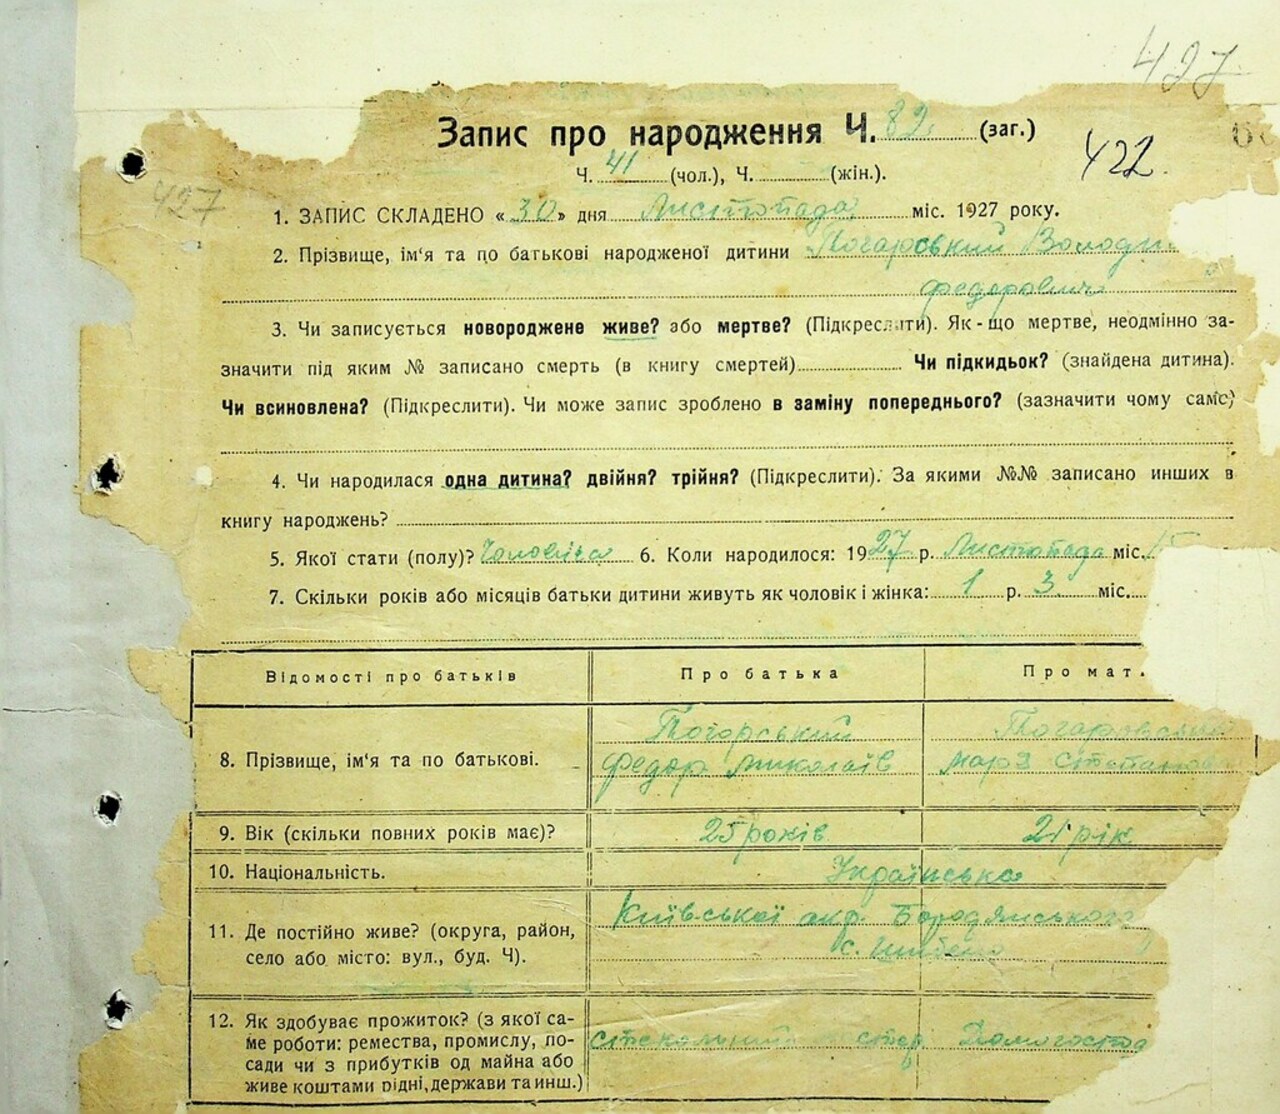 427
Запис про народження Ч. 82 (заг.)
422
Ч. 41 (чол.), Ч. (жін.).
427
1. ЗАПИС СКЛАДЕНО « 30 » дня Листопада міс. 1927 року.
2. Прізвище, ім'я та по батькові народженої дитини Погаровський Володи
Федорович
3. Чи записується новороджене живе? або мертве? (Підкреслити). Як-що мертве, неодмінно за-
значити під яким № записано смерть (в книгу смертей) Чи підкидьок? (знайдена дитина).
Чи всиновлена? (Підкреслити). Чи може запис зроблено в заміну попереднього? (зазначити чому саме)
4. Чи народилася одна дитина? двійня? трійня? (Підкреслити). За якими №№ записано инших в
книгу народжень?
5. Якої стати (полу)? Чоловіча 6. Коли народилося: 1927 р. Листопада міс. 15
7. Скільки років або місяців батьки дитини живуть як чоловік і жінка: 1 р. 3 міс.
Відомості про батьків Про батька Про мат
8. Прізвище, ім'я та по батькові. Погорський Погаровська
Федор Миколаїв Марія Степанов
9. Вік (скільки повних років має)? 25 років 21 рік
10. Національність. Українська
11. Де постійно живе? (округа, район, село або місто: вул., буд. Ч). Київської окр. Бородянського
с.
12. Як здобуває прожиток? (з якої са-
ме роботи: ремества, промислу, по-
сади чи з прибутків од майна або
живе коштами рідні, держави та инш.) Домогоспод